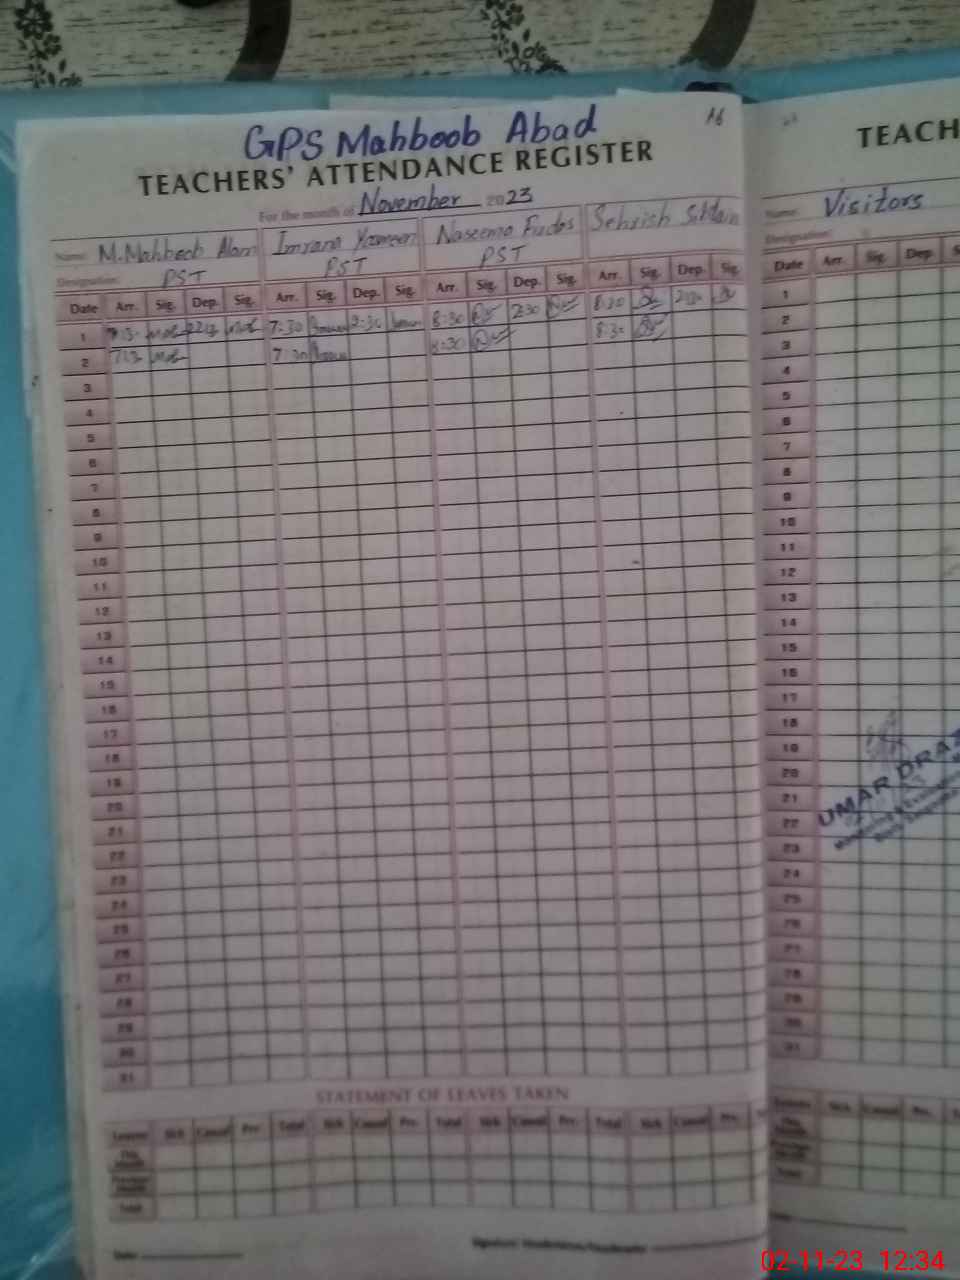 GPS Mahboob Abad
16
TEACHERS' ATTENDANCE REGISTER
For the month of November 2023
Name: M.Mahboob Alam Imrana Yameen Naseema Firdos Sehrish
Designation: PST PST PST
Date Arr. Sig. Dep. Sig. Arr. Sig. Dep. Sig. Arr. Sig. Dep. Sig. Arr. Sig. Dep. Sig.
1 7:30 2:30 8:30 2:30 8:30
2 7:30 8:30 8:30
3
4
5
6
7
8
9
10
11
12
13
14
15
16
17
18
19
20
21
22
23
24
25
26
27
28
29
30
31
STATEMENT OF LEAVES TAKEN
Leaves Sick Casual Prv. Total Sick Casual Prv. Total Sick Casual Prv. Total Sick Casual Prv.
This Month
Previous Month
Total
Date
TEACH
Name: Visitors
Designation:
Date Arr. Sig. Dep. S
1
2
3
4
5
6
7
8
9
10
11
12
13
14
15
16
17
18
19
20
21
22
23
24
25
26
27
28
29
30
31
UMAR DRAZ
Monitoring & Evaluation
Leaves Sick Casual Prv.
This Month
Previous Month
Total
02-11-23 12:34